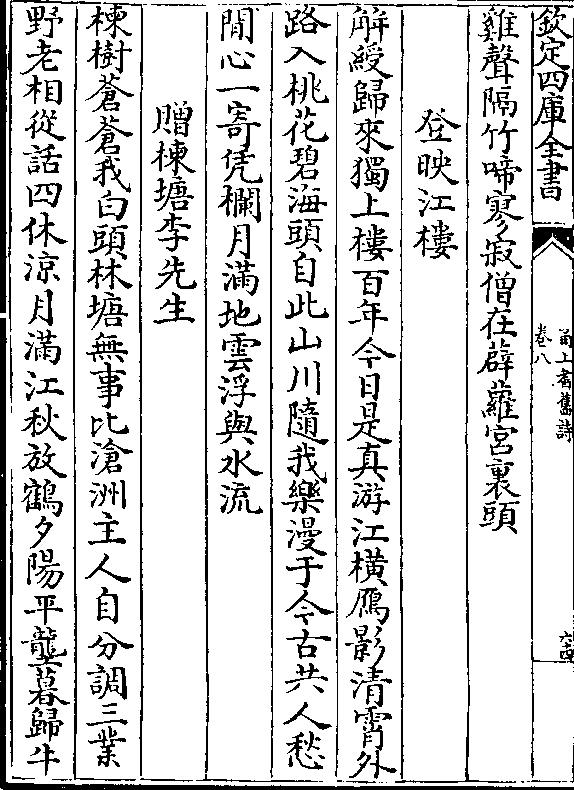 欽定四庫全書
甬上耆舊詩
卷八
六四
雞聲隔竹啼寥寂僧在薜蘿宮裏頭
登映江樓
解綬歸來獨上樓百年今日是真游江橫鴈影清霄外
路入桃花碧海頭自此山川隨我樂漫于今古共人愁
閒心一寄凭欄月滿地雲浮與水流
贈楝塘李先生
楝樹蒼蒼我白頭林塘無事比滄洲主人自分調三業
野老相從話四休涼月滿江秋放鶴夕陽平壟暮歸牛